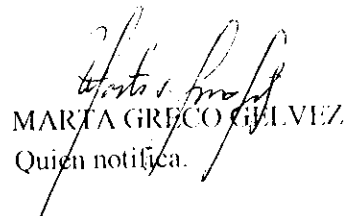 MARTA GRECO GELVEZ
Quien notifica.